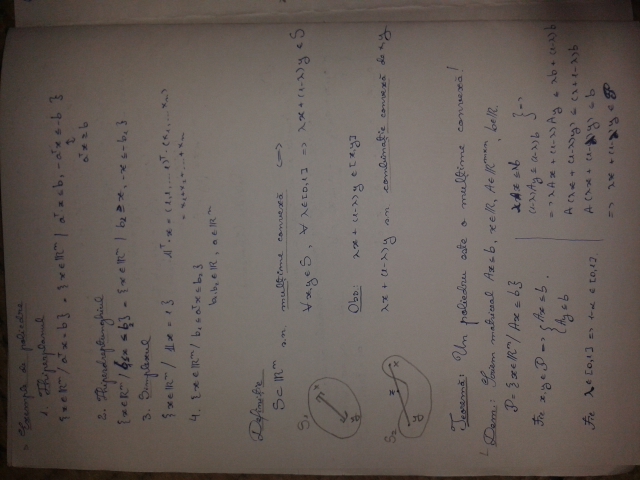 Exemple de poliedre
1. Hiperplanul
{x∈ℝⁿ / aᵀx = b} = {x∈ℝⁿ / aᵀx ≤ b, -aᵀx ≤ -b}
aᵀx = b
2. Hiperdreptunghiul
{x∈ℝⁿ / b₁ ≤ x ≤ b₂} = {x∈ℝⁿ / b₂ ≥ x, -x ≤ -b₁}
3. Simplexul
{x∈ℝⁿ / 1x = 1} 1ᵀ·x = (1,1,...1)ᵀ·(x₁,...,xₙ)
= x₁+x₂+...+xₙ
4. {x∈ℝⁿ / b₁ ≤ aᵀx ≤ b₂}
b₁,b₂∈ℝ, a∈ℝⁿ
Definiție
S⊂ℝⁿ s.n. mulțime convexă <=>
∀x,y∈S, ∀λ∈[0,1] => λx + (1-λ)y ∈ S
S₁
x
y
Obs: λx + (1-λ)y ∈ [x,y]
λx + (1-λ)y s.n. combinație convexă de x,y
S₂
x
y
Teoremă: Un poliedru este o mulțime convexă!
Dem: Scriem matriceal Ax≤b, x∈ℝ, A∈ℝᵐˣⁿ, b∈ℝ
P = {x∈ℝⁿ / Ax ≤ b}
Fie x,y∈P => { Ax ≤ b
Ay ≤ b
Fie λ∈[0,1] => 1-λ ∈ [0,1]
λAx ≤ λb
(1-λ)Ay ≤ (1-λ)b } =>
=> λAx + (1-λ)Ay ≤ λb + (1-λ)b
A(λx + (1-λ)y) ≤ (λ+1-λ)b
A(λx + (1-λ)y) ≤ b
=> λx + (1-λ)y ∈ P